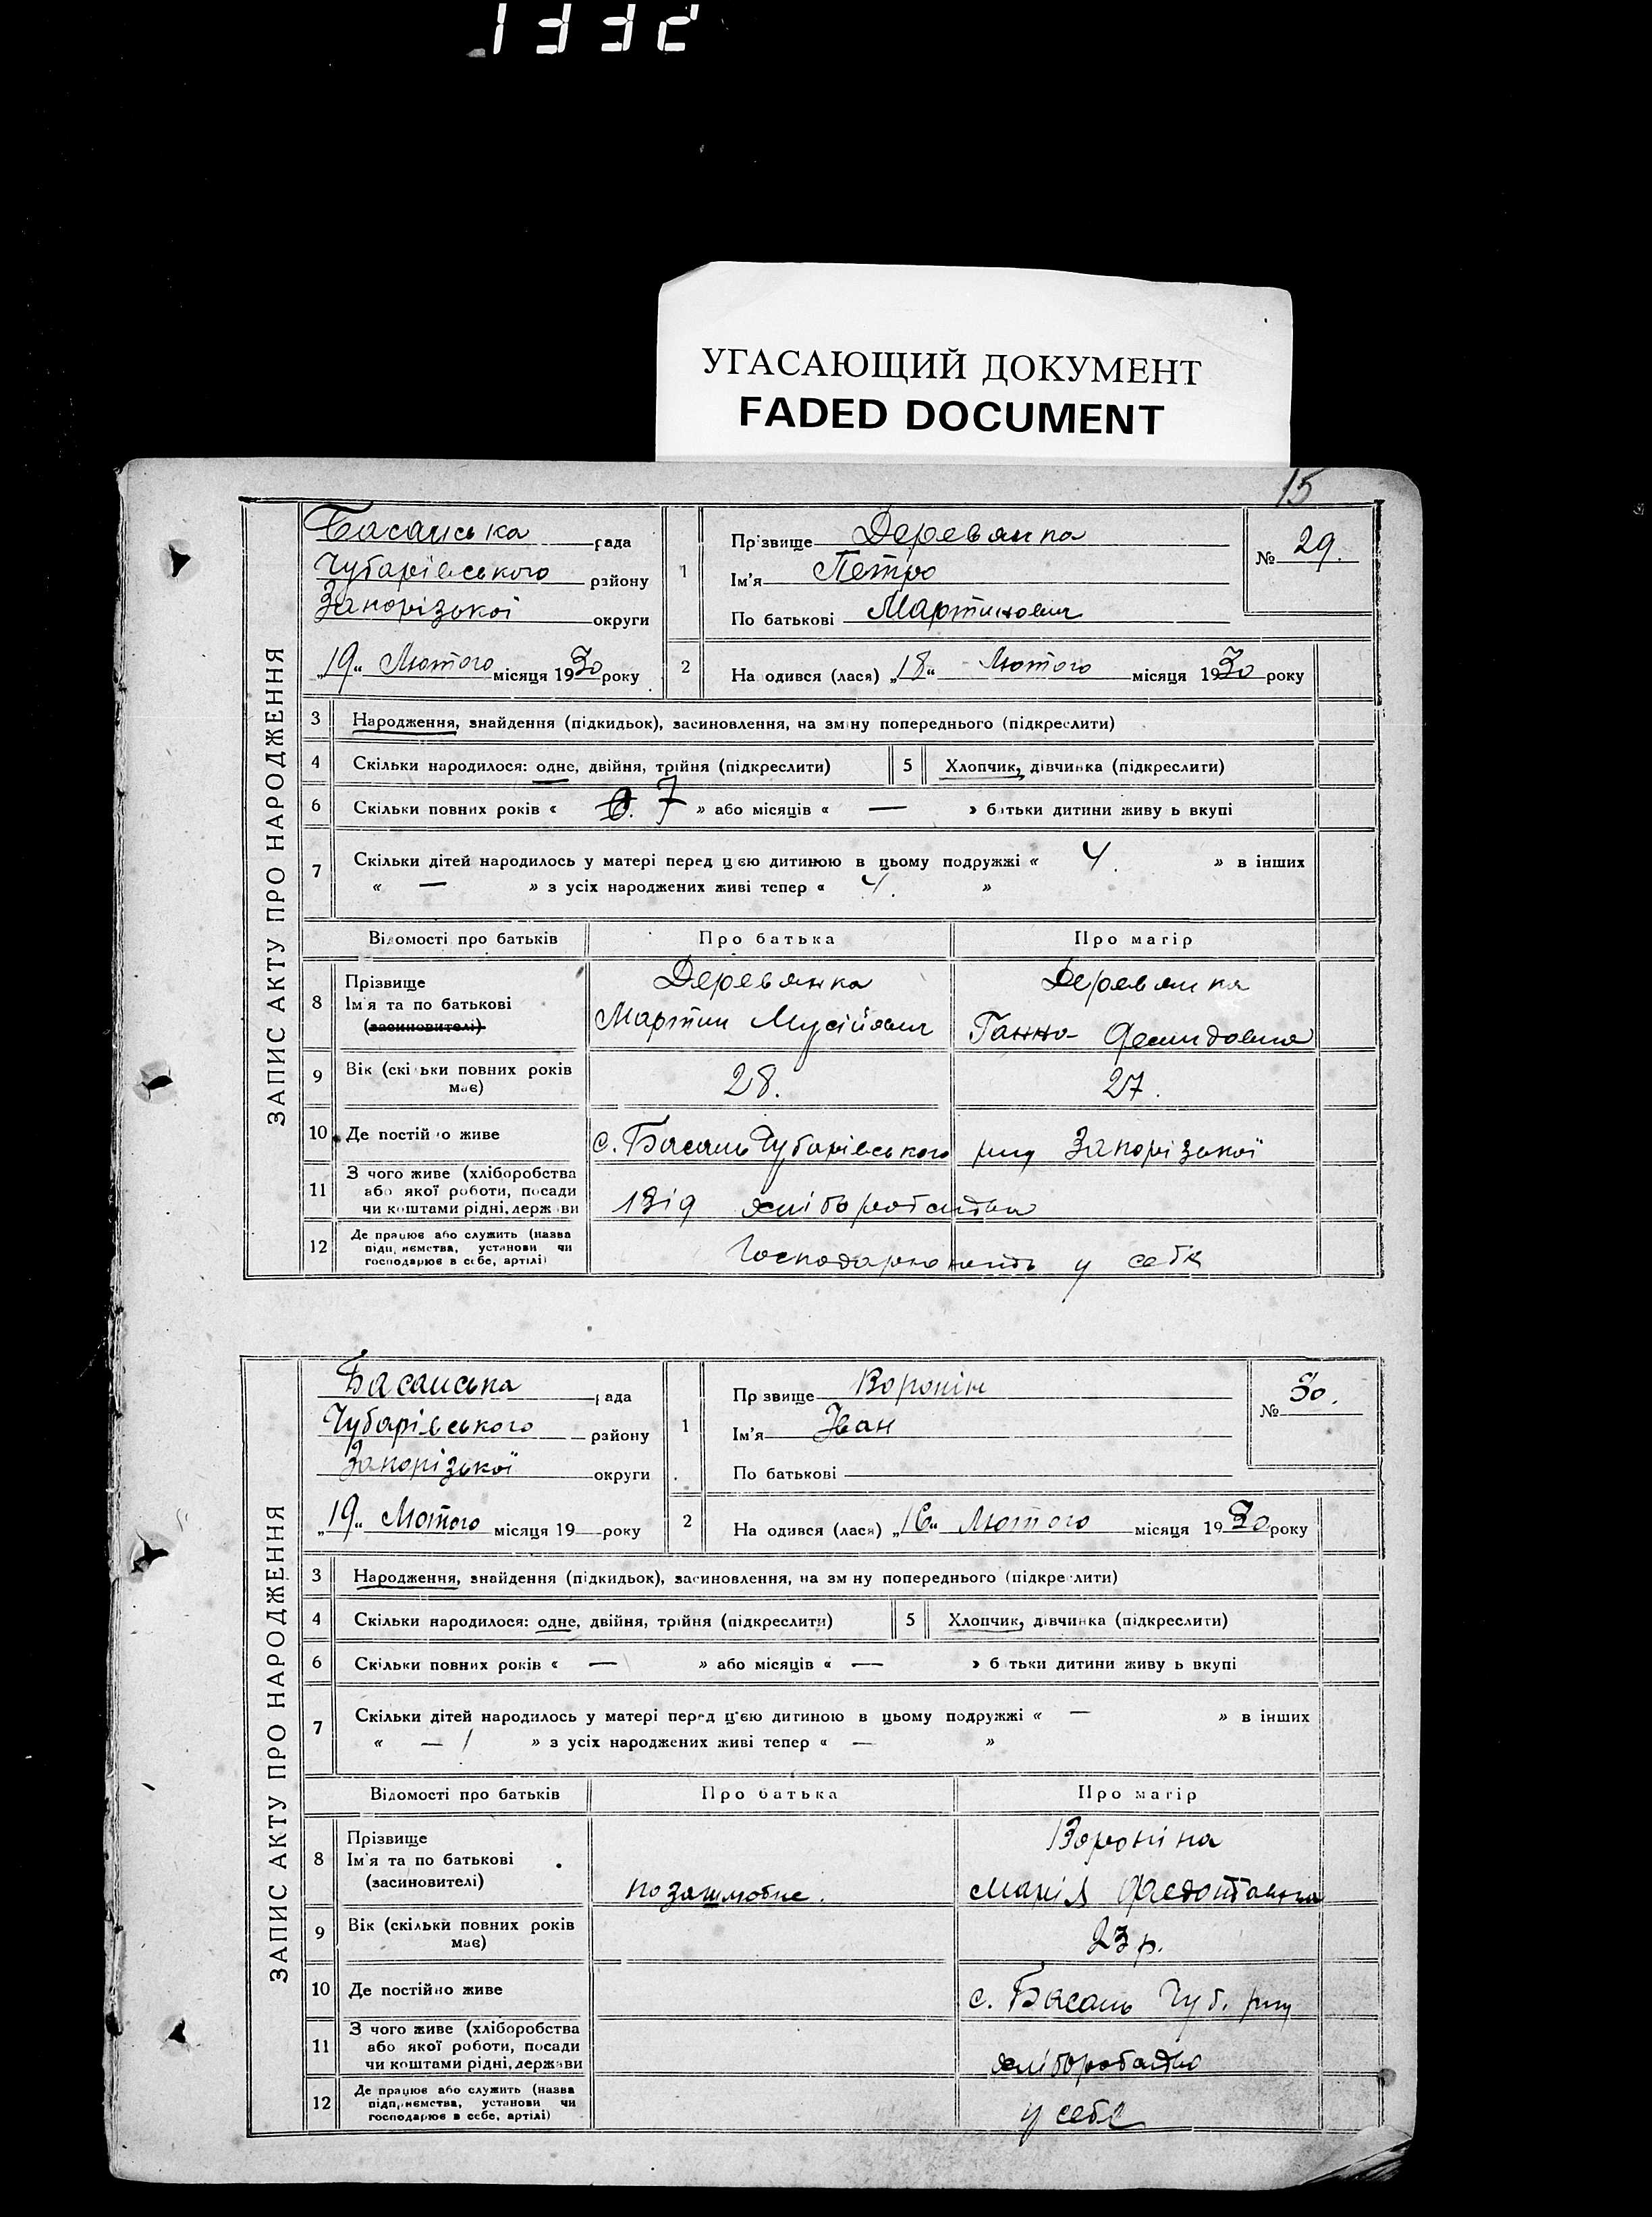 1332
УГАСАЮЩИЙ ДОКУМЕНТ
FADED DOCUMENT
15
ЗАПИС АКТУ ПРО НАРОДЖЕННЯ
Басанська рада
Чубарівського району
Запорізької округи
„19“ Лютого місяця 1930 року
1 Прізвище Деревянка
Ім'я Петро
По батькові Мартинович
№ 29.
2 На одився (лася) „18“ Лютого місяця 1930 року
3 Народження, знайдення (підкидьок), засиновлення, на зміну попереднього (підкреслити)
4 Скільки народилося: одне, двійня, трійня (підкреслити) 5 Хлопчик, дівчинка (підкреслити)
6 Скільки повних років « 7 » або місяців « — » батьки дитини живу ь вкупі
7 Скільки дітей народилось у матері перед цією дитиною в цьому подружжі « 4. » в інших
« — » з усіх народжених живі тепер « 4. »
Відомості про батьків Про батька Про матір
8 Прізвище Деревянка Деревянка
Ім'я та по батькові Мартин Мусійович Ганна Демидовна
(засиновителі)
9 Вік (скільки повних років має) 28. 27.
10 Де постійно живе с. Басань Чубарівського р-ну Запорізької
11 З чого живе (хліборобства
або якої роботи, посади від хліборобства
чи коштами рідні, держави
12 Де працює або служить (назва
підприємства, установи чи Господарюють у себе
господарює в себе, артілі)
ЗАПИС АКТУ ПРО НАРОДЖЕННЯ
Басанська рада
Чубарівського району
Запорізької округи
„19“ Лютого місяця 19— року
1 Прізвище Воронін
Ім'я Іван
По батькові
№ 30.
2 На одився (лася) „16“ Лютого місяця 1930 року
3 Народження, знайдення (підкидьок), засиновлення, на зміну попереднього (підкреслити)
4 Скільки народилося: одне, двійня, трійня (підкреслити) 5 Хлопчик, дівчинка (підкреслити)
6 Скільки повних років « — » або місяців « — » батьки дитини живу ь вкупі
7 Скільки дітей народилось у матері перед цією дитиною в цьому подружжі « — » в інших
« — / » з усіх народжених живі тепер « — »
Відомості про батьків Про батька Про матір
8 Прізвище Вороніна
Ім'я та по батькові
(засиновителі) позашлюбне. Марія Федотовна
9 Вік (скільки повних років має) 23 р.
10 Де постійно живе с. Басань Чуб. р-ну
11 З чого живе (хліборобства
або якої роботи, посади
чи коштами рідні, держави хліборобство
12 Де працює або служить (назва
підприємства, установи чи у себе
господарює в себе, артілі)